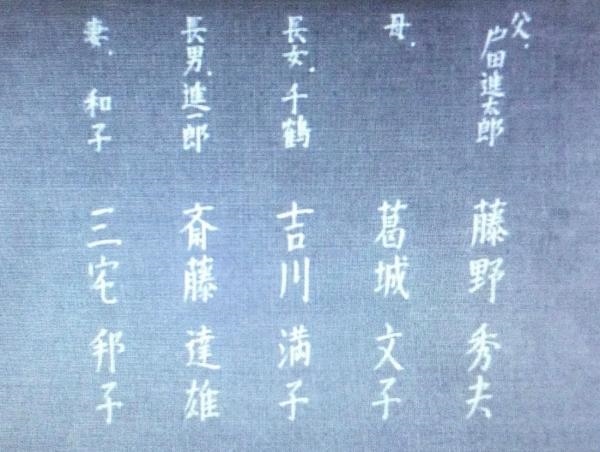 父.戸田進太郎 藤野秀夫
母. 葛城文子
長女.千鶴 吉川満子
長男.進一郎 斎藤達雄
妻.和子 三宅邦子